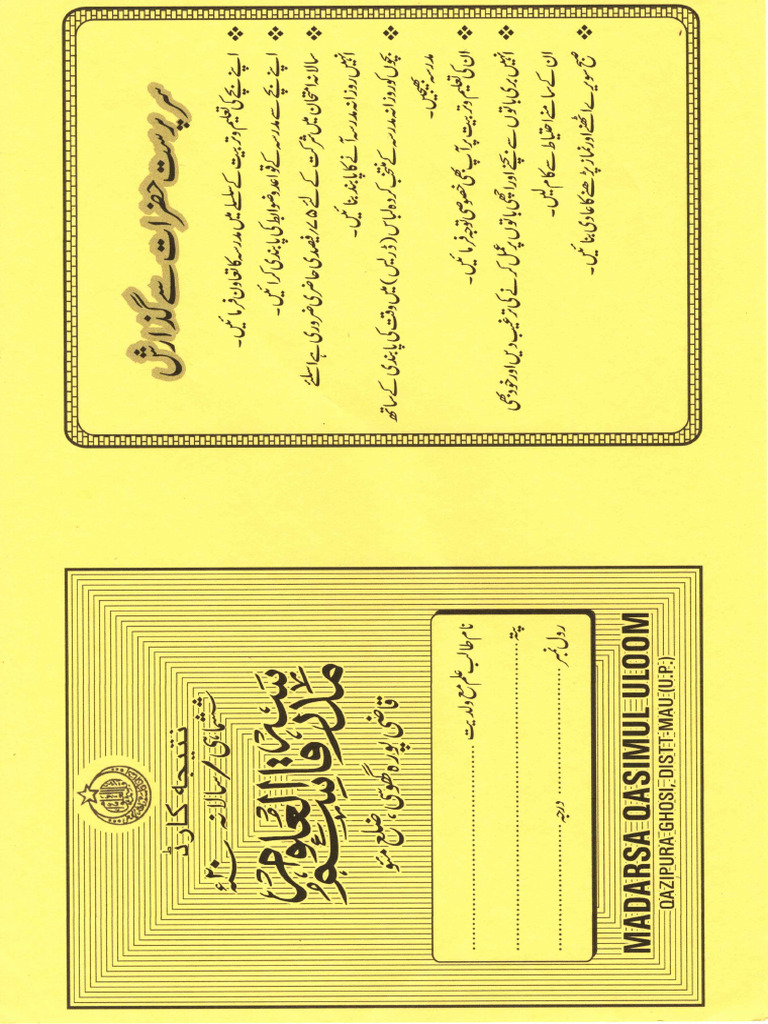 سرپرست حضرات سے گذارش
❖ اپنے بچے کی تعلیم و تربیت کے سلسلے میں مدرسہ کا تعاون فرمائیں۔
❖ اپنے بچے سے مدرسہ کے قواعد و ضوابط کی پابندی کرائیں۔
❖ سالانہ امتحان میں شرکت کے لئے ۷۵ فیصدی حاضری ضروری ہے اسلئے
انہیں روزانہ مدرسہ آنے کا پابند بنائیں۔
❖ بچوں کو روزانہ مدرسہ کے منتخب کردہ لباس (ڈریس) میں وقت کی پابندی کے ساتھ
مدرسہ بھیجیں۔
❖ ان کی تعلیم و تربیت پر آپ بھی خصوصی توجہ فرمائیں۔
❖ انہیں بری باتوں سے بچنے اور اچھی باتوں پر عمل کرنے کی ترغیب دیں اور خود بھی
ان کے سامنے احتیاط سے کام لیں۔
❖ صبح سویرے اٹھنے اور نماز پڑھنے کا عادی بنائیں۔
نتیجہ کارڈ
ششماہی / سالانہ ۲۰ء
مدرسہ قاسم العلوم
قاضی پورہ گھوسی، ضلع مئو
نام طالب علم مع ولدیت
پتہ
رول نمبر درجہ
MADARSA QASIMUL ULOOM
QAZIPURA GHOSI, DISTT-MAU (U.P.)